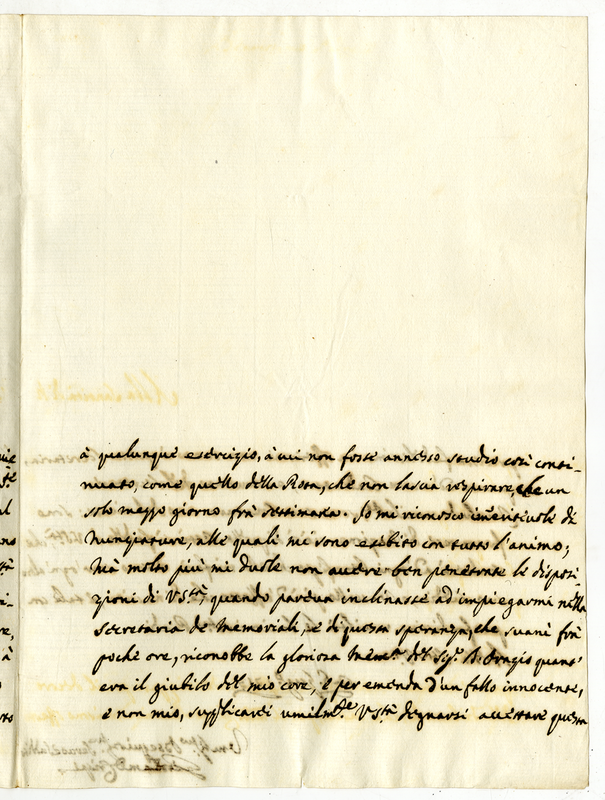 à qualunque esercizio, à cui non fosse annesso studio così conti-
nuato, come quello della Rota, che non lascia respirare, che un
solo mezzo giorno frà settimana. Io mi riconosco immeritevole di
Nunziature, alle quali mi sono esebito con tutto l'animo;
Mà molto più mi duole non avere ben penetrate le disposi-
zioni di V.Stà, quando pareva inclinasse ad'impiegarmi nella
Secretaria de Memoriali, e di questa speranza, che suanì frà
poche ore, riconobbe la gloriosa Mem.a del Sig.r D. Orazio quant'
era il giubilo del mio core, e per emenda d'un fallo innocente,
e non mio, supplicarei umilm.te V.Stà degnarsi accettare questa